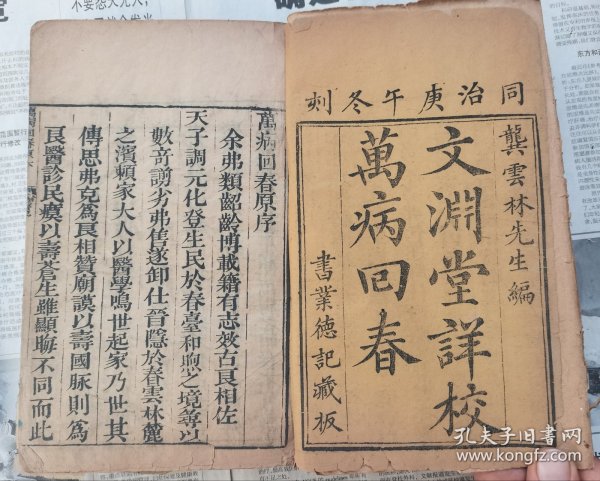 同治庚午冬刻
龔雲林先生編
文淵堂詳校
萬病回春
書業德記藏板
萬病回春原序
余弗類齠齡博載籍有志效古良相佐
天子調元化登生民於春臺和煦之境等以
數奇謭劣弗售遂卸仕晉隱於春雲林麓
之濱賴家大人以醫學鳴世起家乃世其
傳思弗克為良相贊廟謨以壽國脉則為
良醫診民瘼以壽蒼生雖顯晦不同而此
孔夫子旧书网